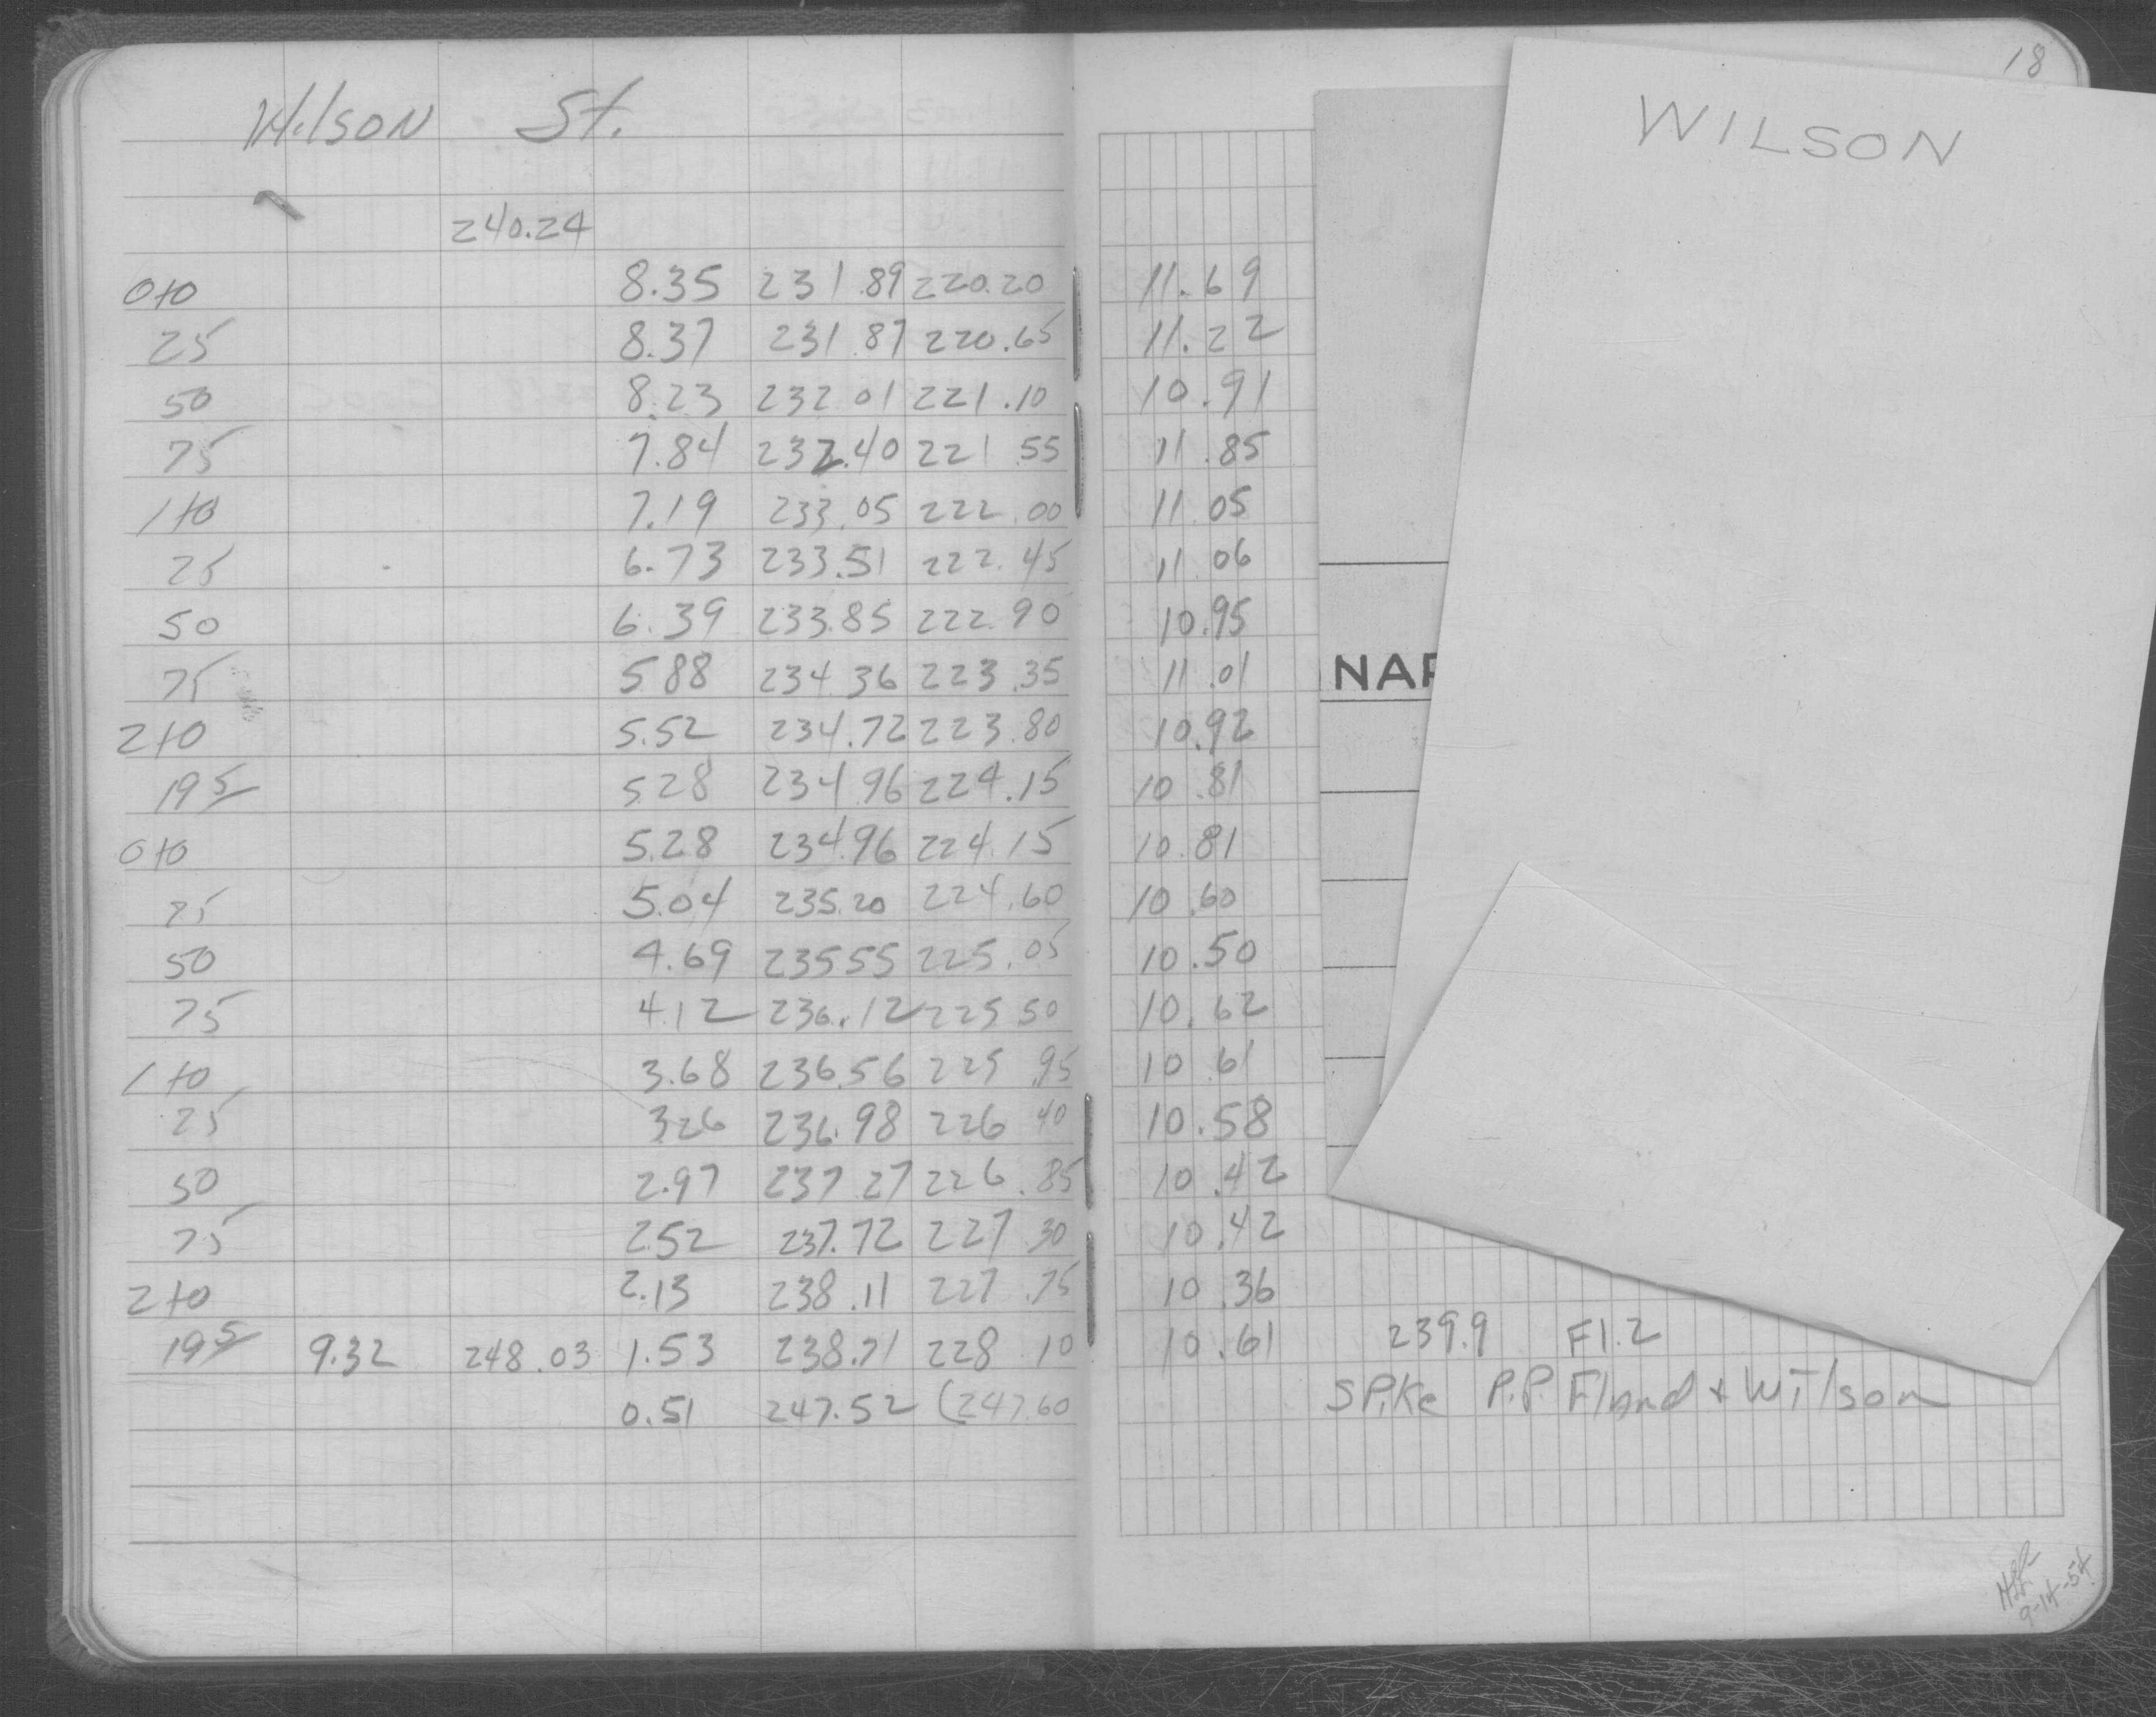 18
Wilson St.
WILSON
240.24
0+0 8.35 231.89 220.20 11.69
25 8.37 231.87 220.65 11.22
50 8.23 232 01 221.10 10.91
75 7.84 232.40 221 55 11.85
1+0 7.19 233.05 222.00 11 05
25 6.73 233.51 222.45 11 06
50 6.39 233.85 222.90 10.95
75 5 88 234 36 223.35 11.01
NAP
2+0 5.52 234.72 223.80 10.92
195 5 28 234 96 224.15 10.81
0+0 5.28 234.96 224.15 10.81
25 5.04 235.20 224.60 10.60
50 4.69 235 55 225.05 10.50
75 4.12 236.12 225 50 10.62
1+0 3.68 236.56 225.95 10 61
25 3 26 236.98 226 40 10.58
50 2.97 237 27 226.85 10.42
75 2.52 237.72 227 30 10.42
2+0 2.13 238.11 227.75 10.36
195 9.32 248.03 1.53 238.71 228 10 10.61 239.9 F1.2
0.51 247.52 (247.60 SPiKe P.P. Flond + Wilson
9-14-54